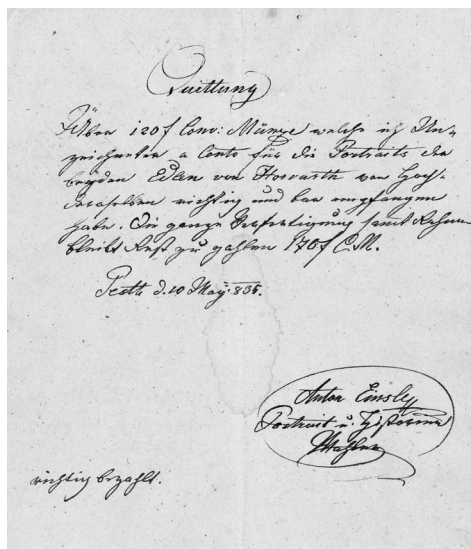 Quittung
Über 120 f Conv: Münze welche ich Un-
zeichneter a Conto für die Portraits der
beyden Edlen von Horvarth von Hoch-
denselben richtig und bar empfangen
habe. Die ganze Verfertigung samt Rahmen
bleibt Rest zu zahlen 170 f C.M.
Pesth d. 10 May 835.
Anton Einsle
Portrait u. Historien
Mahler
richtig bezahlt.